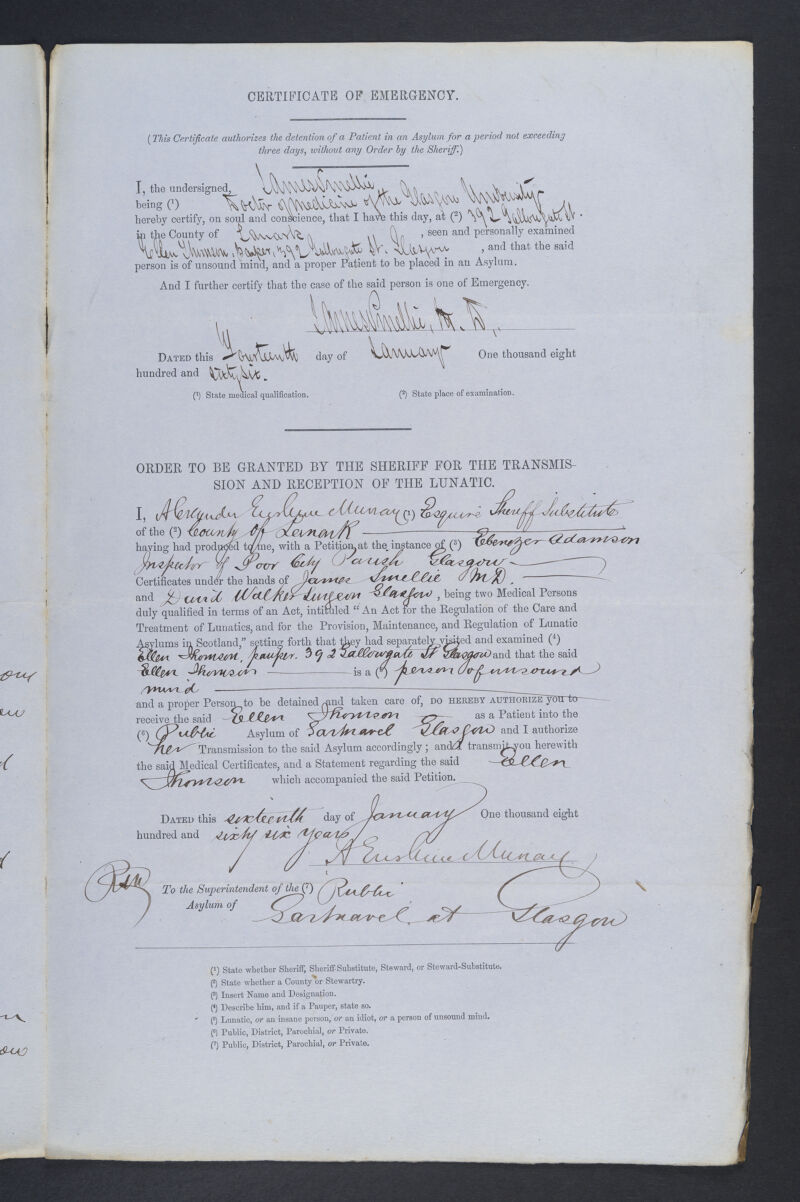 CERTIFICATE OF EMERGENCY.
(This Certificate authorizes the detention of a Patient in an Asylum for a period not exceeding
three days, without any Order by the Sheriff.)
I, the undersigned, James Smellie
being (1) Doctor of Medicine of the Glasgow University
hereby certify, on soul and conscience, that I have this day, at (2) 392 Gallowgate St.
in the County of Lanark, seen and personally examined
Ellen Thomson, pauper, 392 Gallowgate St. Glasgow, and that the said
person is of unsound mind, and a proper Patient to be placed in an Asylum.
And I further certify that the case of the said person is one of Emergency.
James Smellie, M.D.
DATED this Fourteenth day of January One thousand eight
hundred and sixty six.
(1) State medical qualification. (2) State place of examination.
ORDER TO BE GRANTED BY THE SHERIFF FOR THE TRANSMIS-
SION AND RECEPTION OF THE LUNATIC.
I, Alexander Erskine Murray (1) Esquire Sheriff Substitute
of the (2) County of Lanark
having had produced to me, with a Petition at the instance of (3) Ebenezer Adamson
Inspector of Poor City Parish Glasgow
Certificates under the hands of James Smellie M.D.
and David Walker Surgeon Glasgow, being two Medical Persons
duly qualified in terms of an Act, intituled "An Act for the Regulation of the Care and
Treatment of Lunatics, and for the Provision, Maintenance, and Regulation of Lunatic
Asylums in Scotland," setting forth that they had separately visited and examined (4)
Ellen Thomson, pauper. 392 Gallowgate St Glasgow and that the said
Ellen Thomson is a (5) person of unsound
mind
and a proper Person to be detained and taken care of, DO HEREBY AUTHORIZE you to
receive the said Ellen Thomson as a Patient into the
(6) Public Asylum of Gartnavel Glasgow and I authorize
her Transmission to the said Asylum accordingly; and I transmit you herewith
the said Medical Certificates, and a Statement regarding the said Ellen
Thomson which accompanied the said Petition.
DATED this sixteenth day of January One thousand eight
hundred and sixty six years
A Erskine Murray
To the Superintendent of the (7) Public
Asylum of Gartnavel at Glasgow
(1) State whether Sheriff, Sheriff-Substitute, Steward, or Steward-Substitute.
(2) State whether a County or Stewartry.
(3) Insert Name and Designation.
(4) Describe him, and if a Pauper, state so.
(5) Lunatic, or an insane person, or an idiot, or a person of unsound mind.
(6) Public, District, Parochial, or Private.
(7) Public, District, Parochial, or Private.